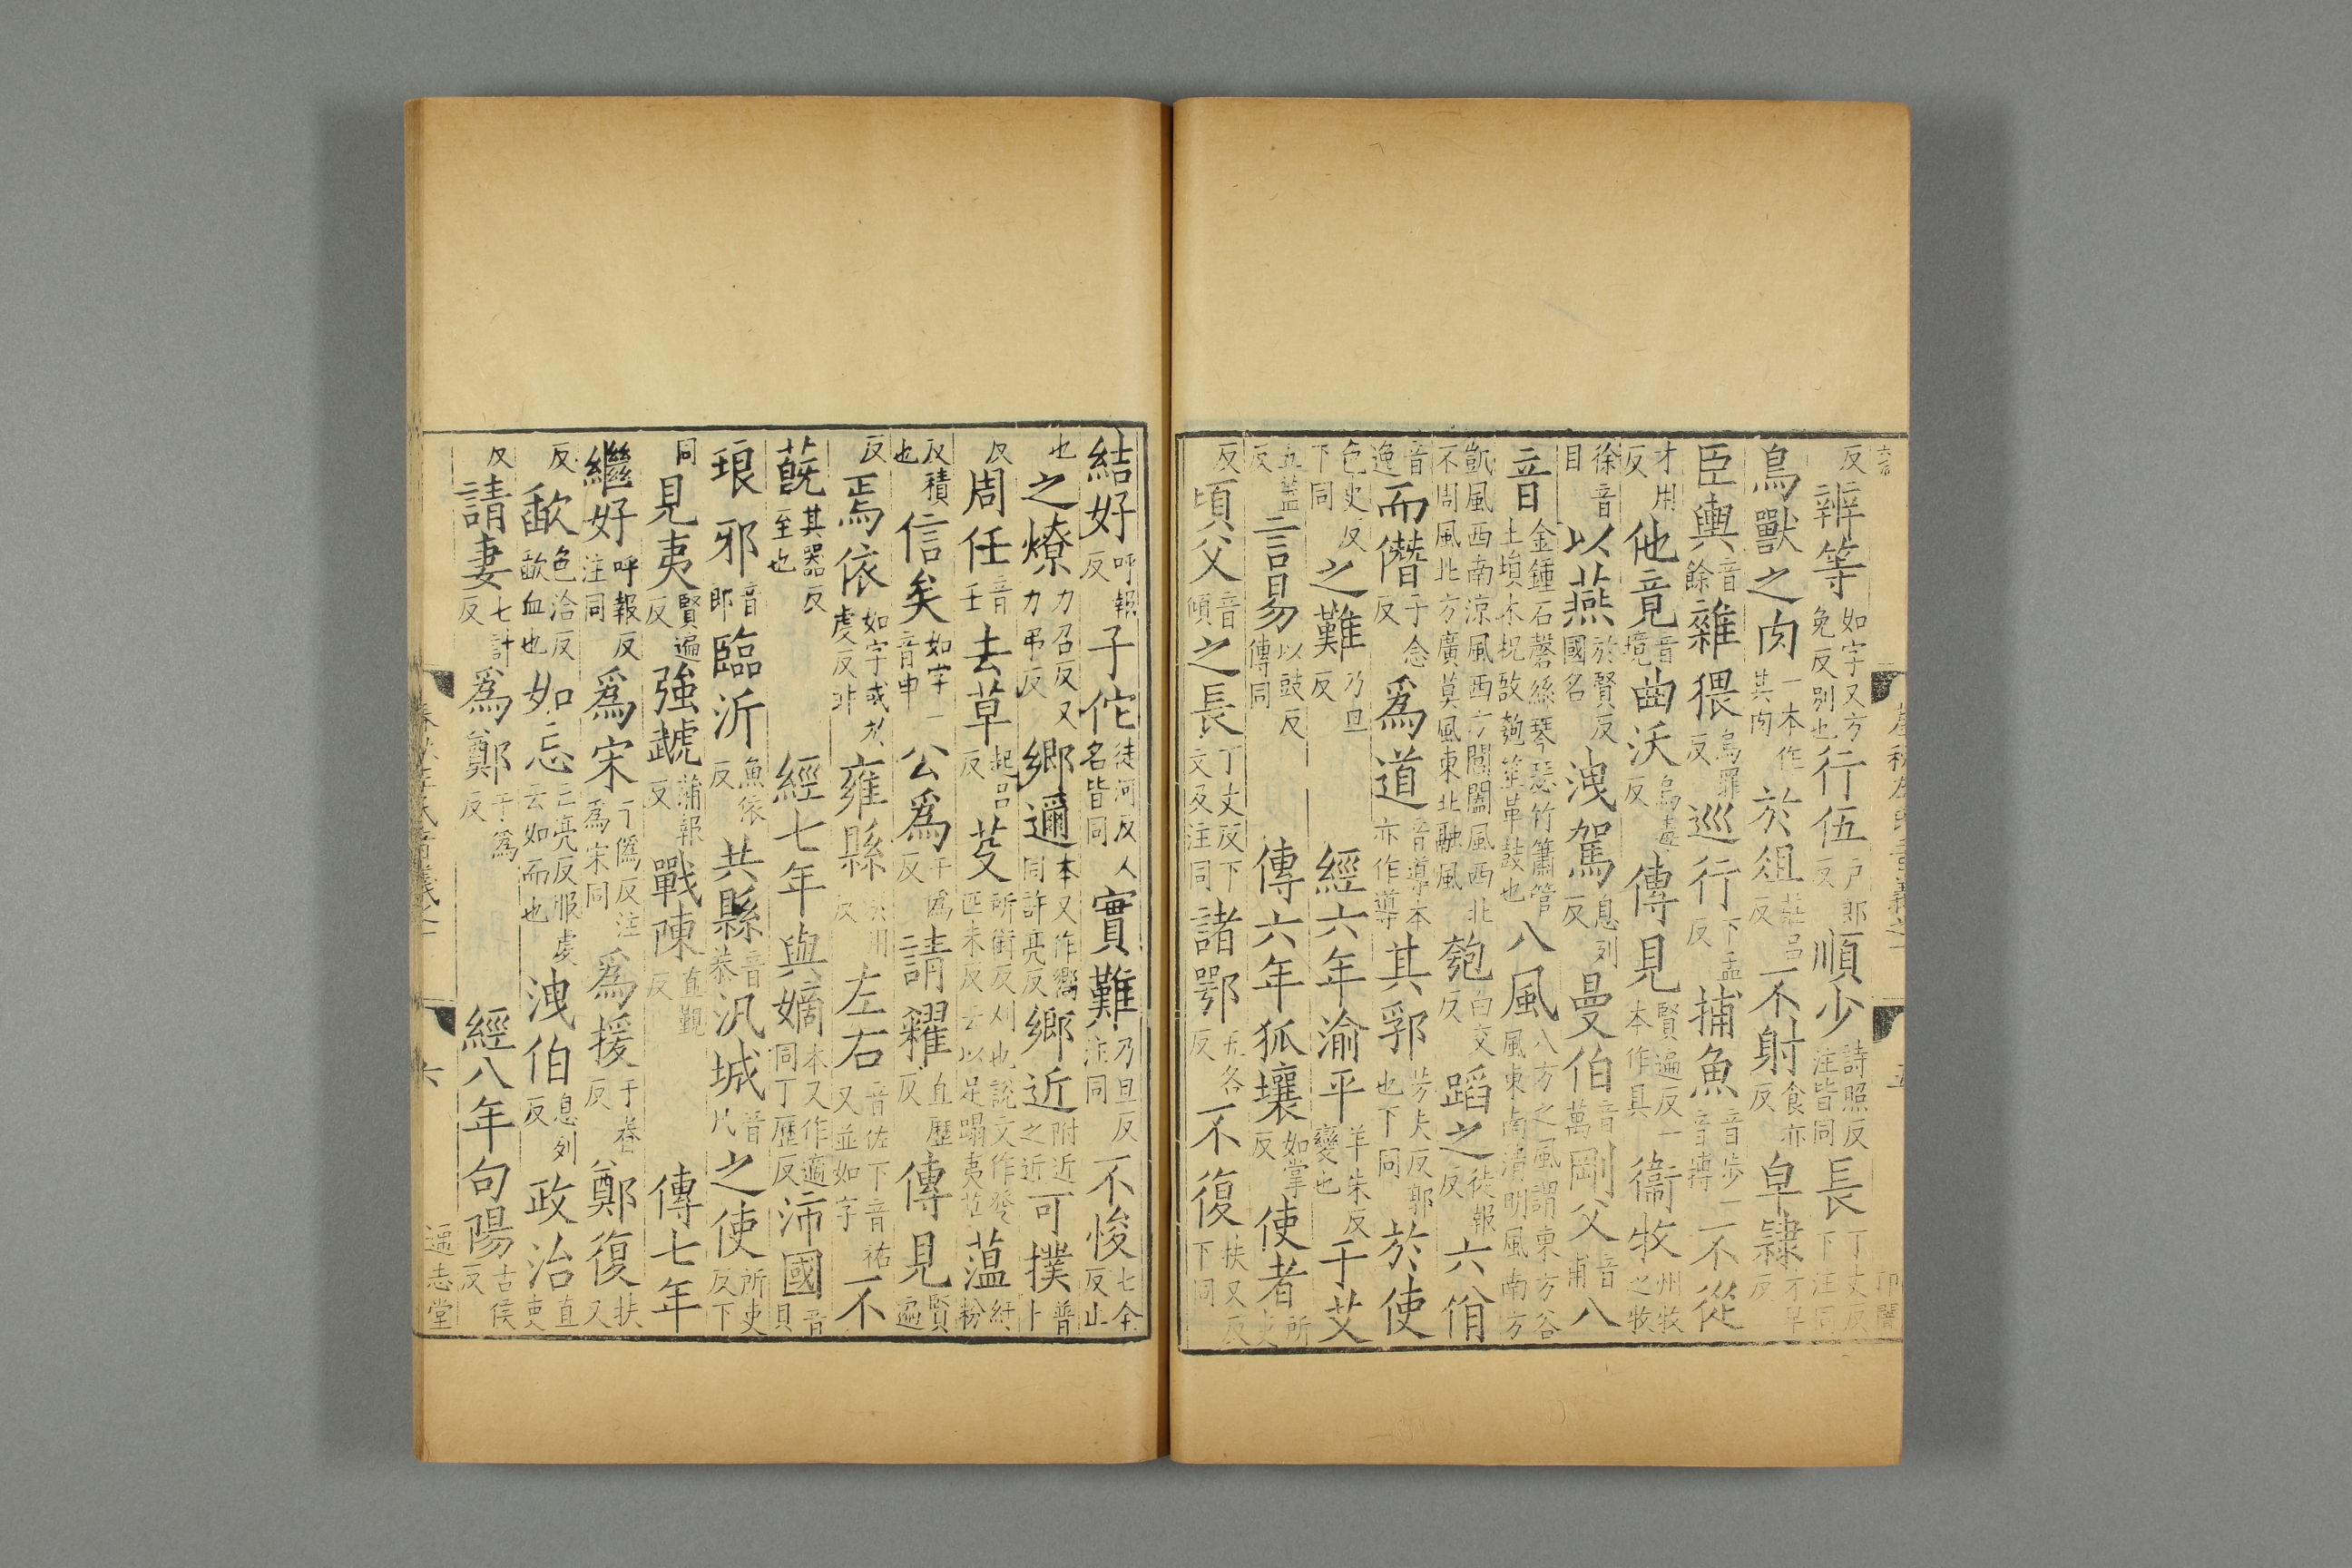 反辨等如字又方免反別也行伍戶郎反順少詩照反注皆同長丁丈反下注同
鳥獸之肉一本作其肉於俎莊呂反不射食亦反皁隷才早反
臣輿音餘雜猥烏罪反巡行下孟反捕魚音步一音搏不從
才用反他竟音境曲沃烏毒反傳見賢遍反一本作具衞牧州牧之牧
徐音目以燕於賢反國名洩駕息列反曼伯音萬剛父音甫八
音金鍾石磬絲琴瑟竹簫管土塤木柷敔匏笙革鼓也八風八方之風謂東方谷風東南清明風南方
凱風西南涼風西方閶闔風西北不周風北方廣莫風東北融風匏白交反蹈之徒報反六佾
音逸而僭子念反為道音導本亦作導其郛芳夫反郭也下同於使
色吏反下同之難乃旦反經六年渝平羊朱反變也于艾
五蓋反言易以豉反傳同傳六年狐壤如掌反使者所吏
反頃父音傾之長丁丈反下文及注同諸鄂五各反不復扶又反下同
結好呼報反子佗徒河反人名皆同實難乃旦反注同不悛七全反止
也之燎力召反又力弔反鄉邇本又作嚮同許亮反鄉近附近之近可撲普卜
反周任音壬去草起呂反芟所銜反刈也說文作癹匹末反云以足蹋夷草薀紆粉
反積也信矣如字一音申公為于偽反請糴直歷反傳見賢遍
反焉依如字或於虔反非雍縣於用反左右音佐下音祐又並如字不
蔇其器反至也經七年與嫡本又作適同丁歷反沛國音貝
琅邪音郎臨沂魚依反共縣音恭汎城音凡之使所吏反下
同見夷賢遍反強虣蒲報反戰陳直覲反傳七年
繼好呼報反注同為宋于偽反注為宋同為援于眷反鄭復扶又
反歃色洽反歃血也如忘亡亮反服虔云如而也洩伯息列反政治直吏
反請妻七計反為鄭于偽反經八年句陽古侯反
春秋左氏音義之一
六
遁志堂